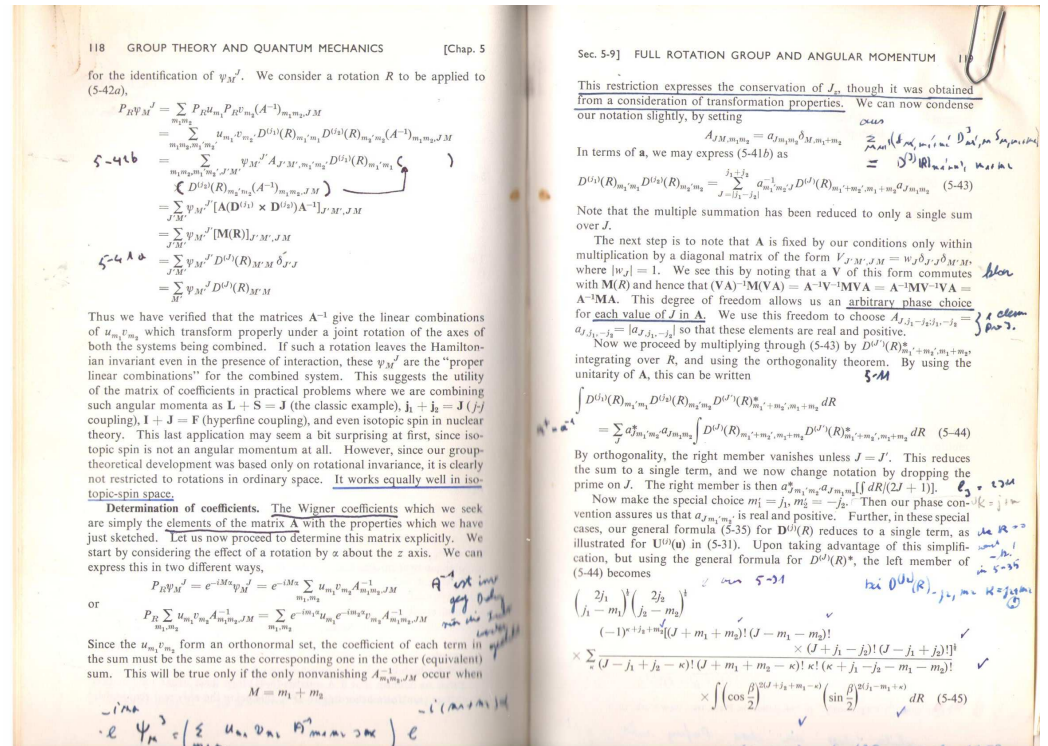 118 GROUP THEORY AND QUANTUM MECHANICS [Chap. 5
for the identification of ψ_M^J. We consider a rotation R to be applied to
(5-42a),
P_Rψ_M^J = ∑_{m₁m₂} P_Ru_{m₁}P_Rv_{m₂}(A⁻¹)_{m₁m₂,JM}
= ∑_{m₁m₂,m₁'m₂'} u_{m₁'}v_{m₂'}D^{(j₁)}(R)_{m₁'m₁}D^{(j₂)}(R)_{m₂'m₂}(A⁻¹)_{m₁m₂,JM}
5-41b = ∑_{m₁m₂,m₁'m₂',J'M'} ψ_{M'}^{J'}A_{J'M',m₁'m₂'}D^{(j₁)}(R)_{m₁'m₁} ( )
( D^{(j₂)}(R)_{m₂'m₂}(A⁻¹)_{m₁m₂,JM} )
= ∑_{J'M'} ψ_{M'}^{J'}[A(D^{(j₁)} × D^{(j₂)})A⁻¹]_{J'M',JM}
= ∑_{J'M'} ψ_{M'}^{J'}[M(R)]_{J'M',JM}
5-41a = ∑_{J'M'} ψ_{M'}^{J'}D^{(J)}(R)_{M'M} δ_{J'J}
= ∑_{M'} ψ_{M'}^{J}D^{(J)}(R)_{M'M}
Thus we have verified that the matrices A⁻¹ give the linear combinations
of u_{m₁}v_{m₂} which transform properly under a joint rotation of the axes of
both the systems being combined. If such a rotation leaves the Hamilton-
ian invariant even in the presence of interaction, these ψ_M^J are the "proper
linear combinations" for the combined system. This suggests the utility
of the matrix of coefficients in practical problems where we are combining
such angular momenta as L + S = J (the classic example), j₁ + j₂ = J (j-j
coupling), I + J = F (hyperfine coupling), and even isotopic spin in nuclear
theory. This last application may seem a bit surprising at first, since iso-
topic spin is not an angular momentum at all. However, since our group-
theoretical development was based only on rotational invariance, it is clearly
not restricted to rotations in ordinary space. It works equally well in iso-
topic-spin space.
Determination of coefficients. The Wigner coefficients which we seek
are simply the elements of the matrix A with the properties which we have
just sketched. Let us now proceed to determine this matrix explicitly. We
start by considering the effect of a rotation by α about the z axis. We can
express this in two different ways,
P_Rψ_M^J = e^{-iMα}ψ_M^J = e^{-iMα} ∑_{m₁,m₂} u_{m₁}v_{m₂}A⁻¹_{m₁m₂,JM}
or
P_R ∑_{m₁,m₂} u_{m₁}v_{m₂}A⁻¹_{m₁m₂,JM} = ∑_{m₁,m₂} e^{-im₁α}u_{m₁}e^{-im₂α}v_{m₂}A⁻¹_{m₁m₂,JM}
Since the u_{m₁}v_{m₂} form an orthonormal set, the coefficient of each term in
the sum must be the same as the corresponding one in the other (equivalent)
sum. This will be true only if the only nonvanishing A⁻¹_{m₁m₂,JM} occur when
M = m₁ + m₂
Sec. 5-9] FULL ROTATION GROUP AND ANGULAR MOMENTUM
This restriction expresses the conservation of J_z, though it was obtained
from a consideration of transformation properties. We can now condense
our notation slightly, by setting
A_{JM,m₁m₂} = a_{Jm₁m₂}δ_{M,m₁+m₂}
In terms of a, we may express (5-41b) as
D^{(j₁)}(R)_{m₁'m₁}D^{(j₂)}(R)_{m₂'m₂} = ∑_{J=|j₁-j₂|}^{j₁+j₂} a⁻¹_{m₁'m₂'J}D^{(J)}(R)_{m₁'+m₂',m₁+m₂}a_{Jm₁m₂} (5-43)
Note that the multiple summation has been reduced to only a single sum
over J.
The next step is to note that A is fixed by our conditions only within
multiplication by a diagonal matrix of the form V_{J'M',JM} = w_Jδ_{J'J}δ_{M'M},
where |w_J| = 1. We see this by noting that a V of this form commutes
with M(R) and hence that (VA)⁻¹M(VA) = A⁻¹V⁻¹MVA = A⁻¹MV⁻¹VA =
A⁻¹MA. This degree of freedom allows us an arbitrary phase choice
for each value of J in A. We use this freedom to choose A_{J,j₁-j₂;j₁,-j₂} =
a_{J,j₁,-j₂} = |a_{J,j₁,-j₂}| so that these elements are real and positive.
Now we proceed by multiplying through (5-43) by D^{(J')}(R)*_{m₁'+m₂',m₁+m₂},
integrating over R, and using the orthogonality theorem. By using the
unitarity of A, this can be written
∫D^{(j₁)}(R)_{m₁'m₁}D^{(j₂)}(R)_{m₂'m₂}D^{(J')}(R)*_{m₁'+m₂',m₁+m₂} dR
= ∑_J a*_{Jm₁'m₂'}a_{Jm₁m₂} ∫D^{(J)}(R)_{m₁'+m₂',m₁+m₂}D^{(J')}(R)*_{m₁'+m₂',m₁+m₂} dR (5-44)
By orthogonality, the right member vanishes unless J = J'. This reduces
the sum to a single term, and we now change notation by dropping the
prime on J. The right member is then a*_{Jm₁'m₂'}a_{Jm₁m₂}[∫ dR/(2J + 1)].
Now make the special choice m₁' = j₁, m₂' = −j₂. Then our phase con-
vention assures us that a_{Jm₁'m₂'} is real and positive. Further, in these special
cases, our general formula (5-35) for D^{(j)}(R) reduces to a single term, as
illustrated for U^{(j)}(u) in (5-31). Upon taking advantage of this simplifi-
cation, but using the general formula for D^{(J)}(R)*, the left member of
(5-44) becomes
(2j₁ / j₁ − m₁)^{½} (2j₂ / j₂ − m₂)^{½}
(−1)^{κ+j₂+m₂}[(J + m₁ + m₂)! (J − m₁ − m₂)!
× (J + j₁ − j₂)! (J − j₁ + j₂)!]^{½}
× ∑_κ / (J − j₁ + j₂ − κ)! (J + m₁ + m₂ − κ)! κ! (κ + j₁ − j₂ − m₁ − m₂)!
× ∫(cos β/2)^{2(J+j₂+m₁−κ)} (sin β/2)^{2(j₁−m₁+κ)} dR (5-45)